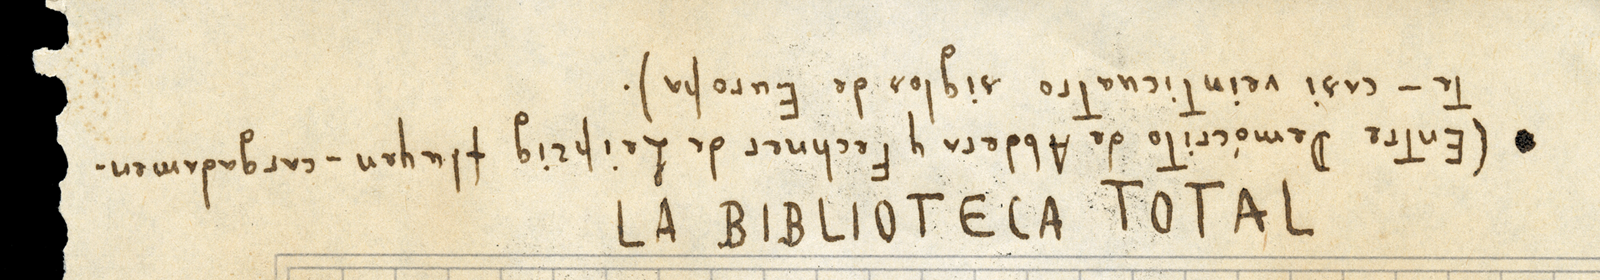 LA BIBLIOTECA TOTAL
(Entre Demócrito de Abdera y Fechner de Leipzig fluyen – cargadamen-
te – casi veinticuatro siglos de Europa).